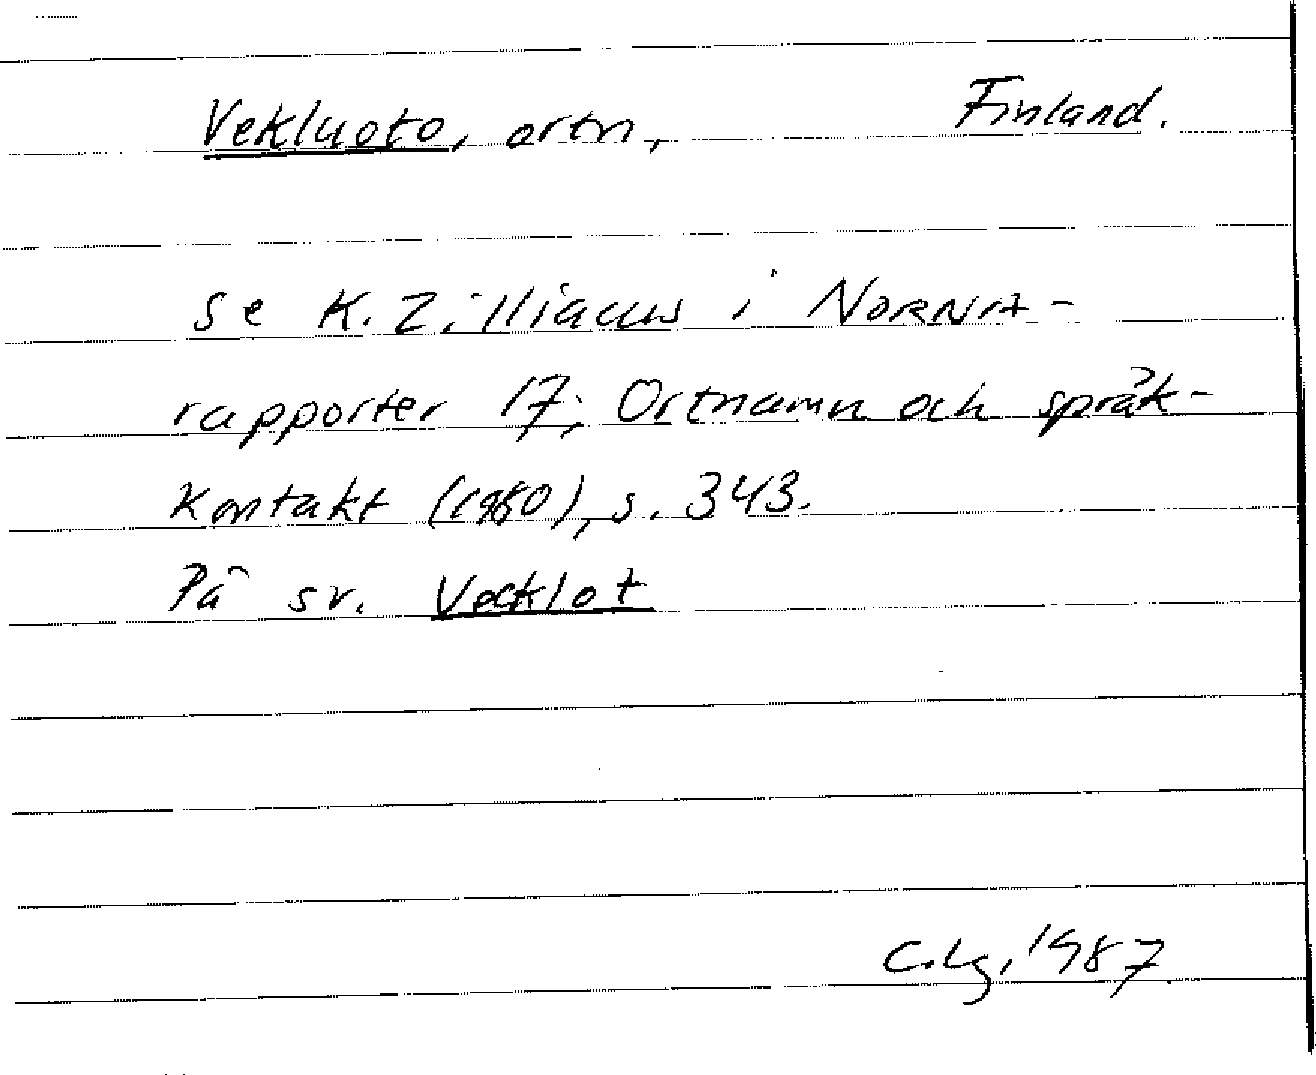 Vekluoto, ortn, Finland.
se K. Zilliacus i NORNA-
rapporter 17; Ortnamn och språk-
kontakt (1980), s. 343.
På sv. Vecklot
C.Lg, 1987